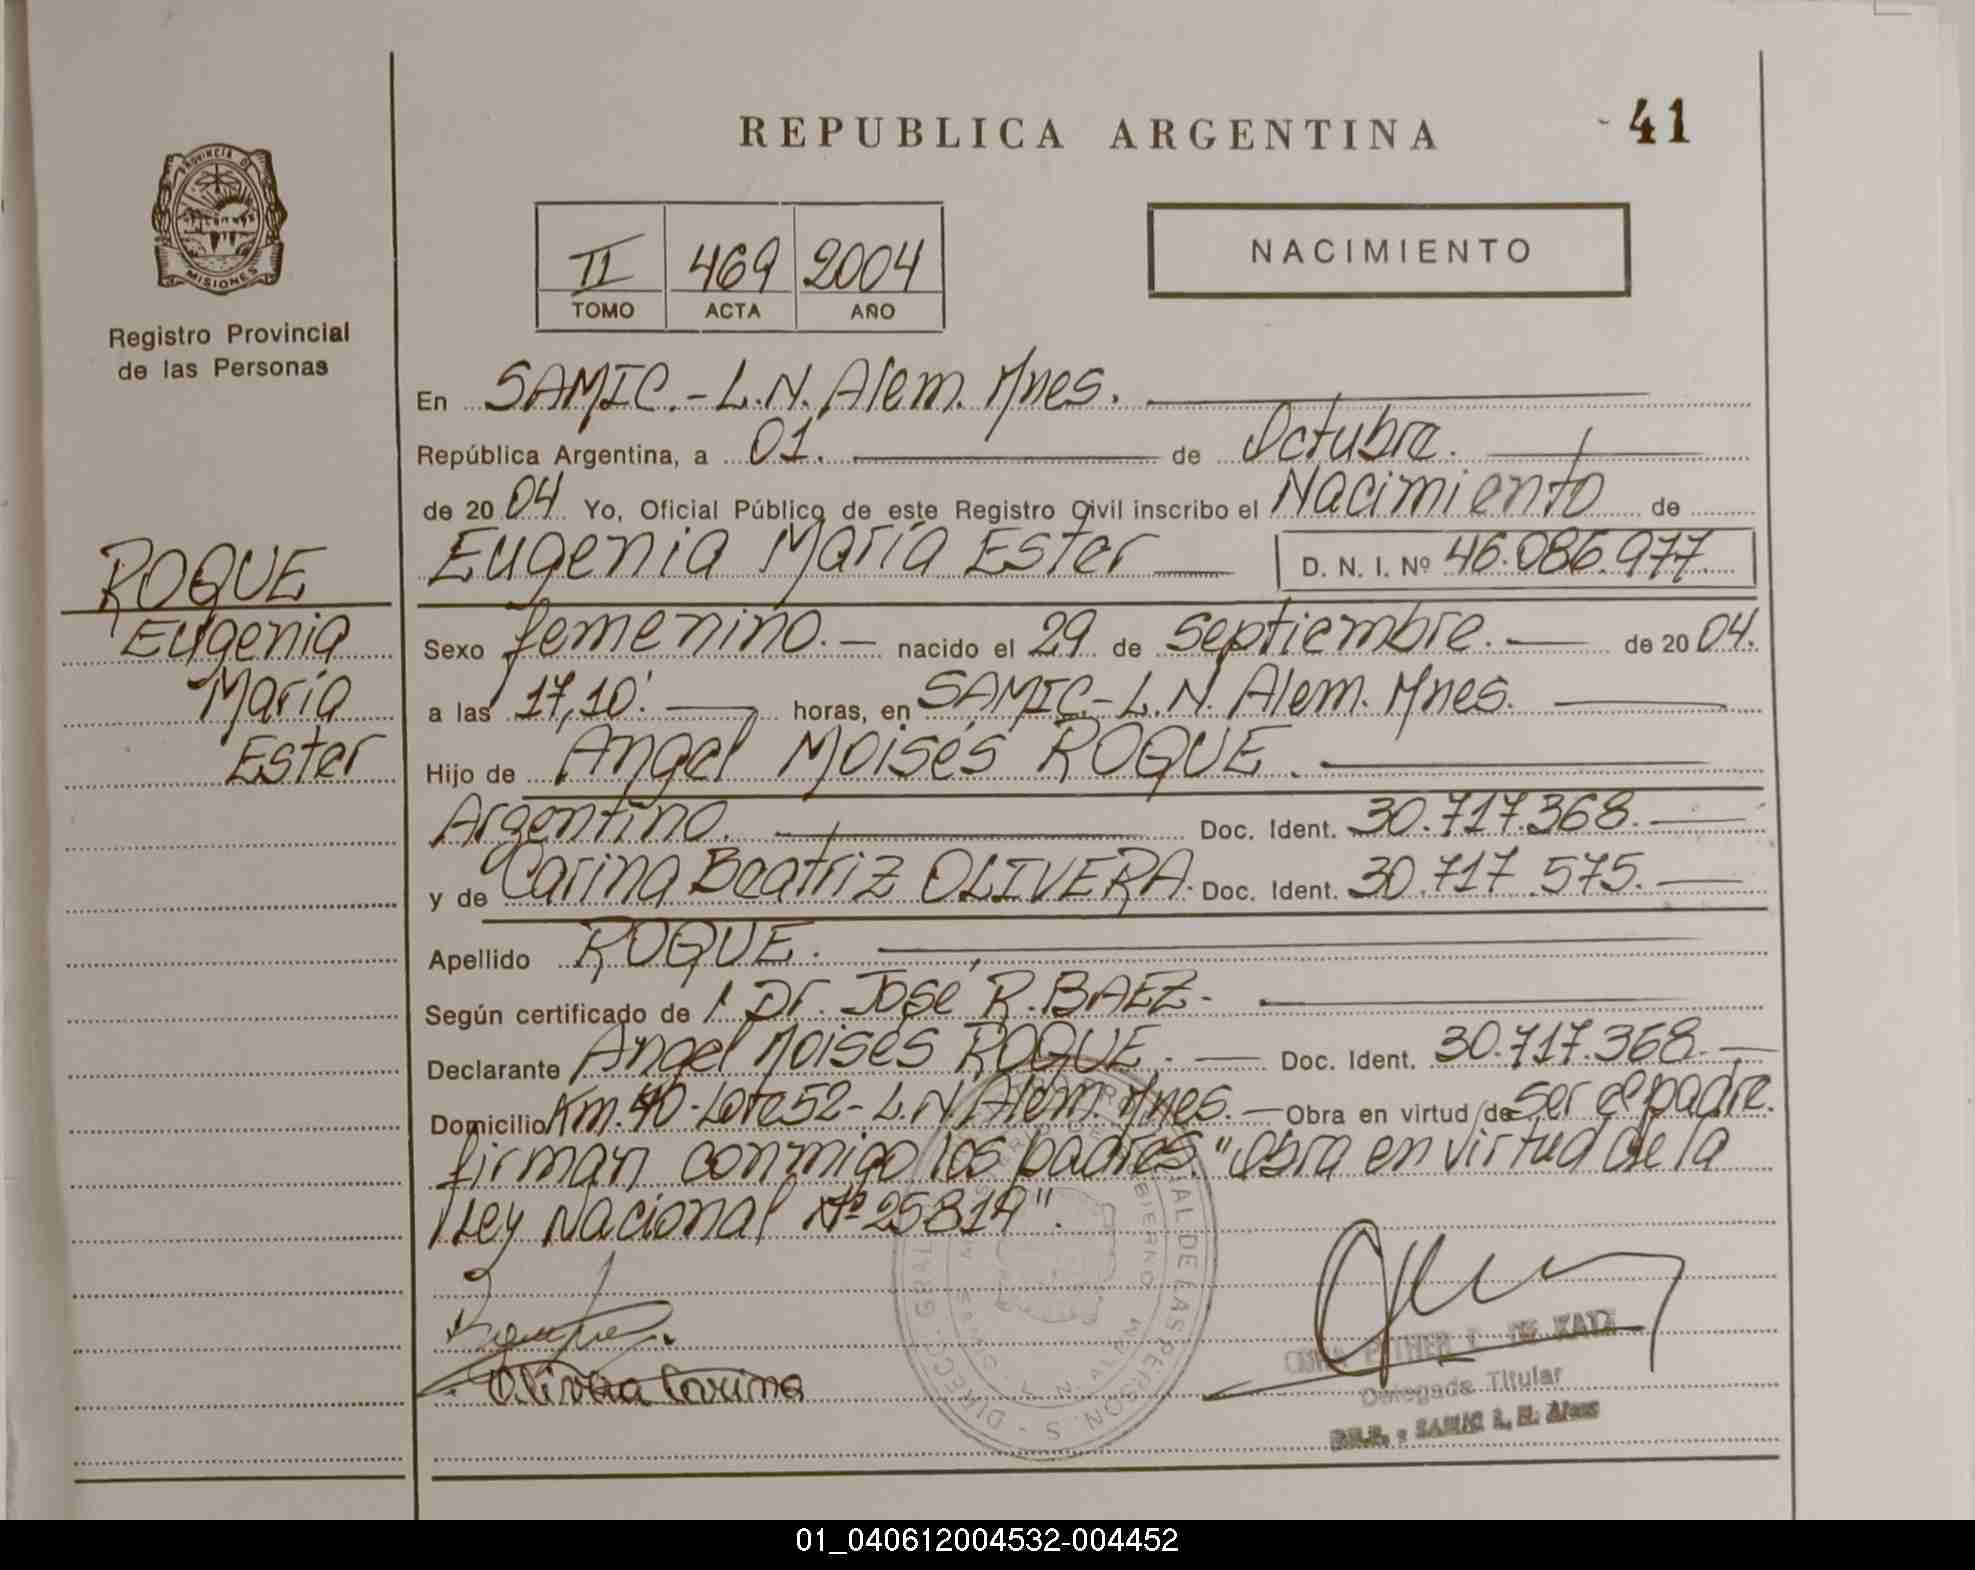 REPUBLICA ARGENTINA
41
PROVINCIA DE
MISIONES
Registro Provincial
de las Personas
II 469 2004
TOMO ACTA AÑO
NACIMIENTO
ROQUE
Eugenia
María
Ester
En SAMIC.-L.N. Alem. Mnes.
República Argentina, a 01. de Octubre.
de 2004 Yo, Oficial Público de este Registro Civil inscribo el Nacimiento de
Eugenia María Ester D. N. I. Nº 46.086.977
Sexo femenino.- nacido el 29 de septiembre. de 2004.
a las 17,10' horas, en SAMIC.-L.N. Alem. Mnes.
Hijo de Angel Moisés ROQUE.
Argentino. Doc. Ident. 30.717.368.
y de Carina Beatriz OLIVERA. Doc. Ident. 30.717.575.
Apellido ROQUE.
Según certificado de Dr. José R. BAEZ-
Declarante Angel Moisés ROQUE. Doc. Ident. 30.717.368.
Domicilio Km.40-Lote52-L.N. Alem. Mnes. Obra en virtud de ser el padre.
firman conmigo los padres. "Obra en virtud de la
Ley Nacional Nº 25819".
Olivera Carina
DE KATZ
Delegada Titular
SAMIC L. N. Alem
01_040612004532-004452